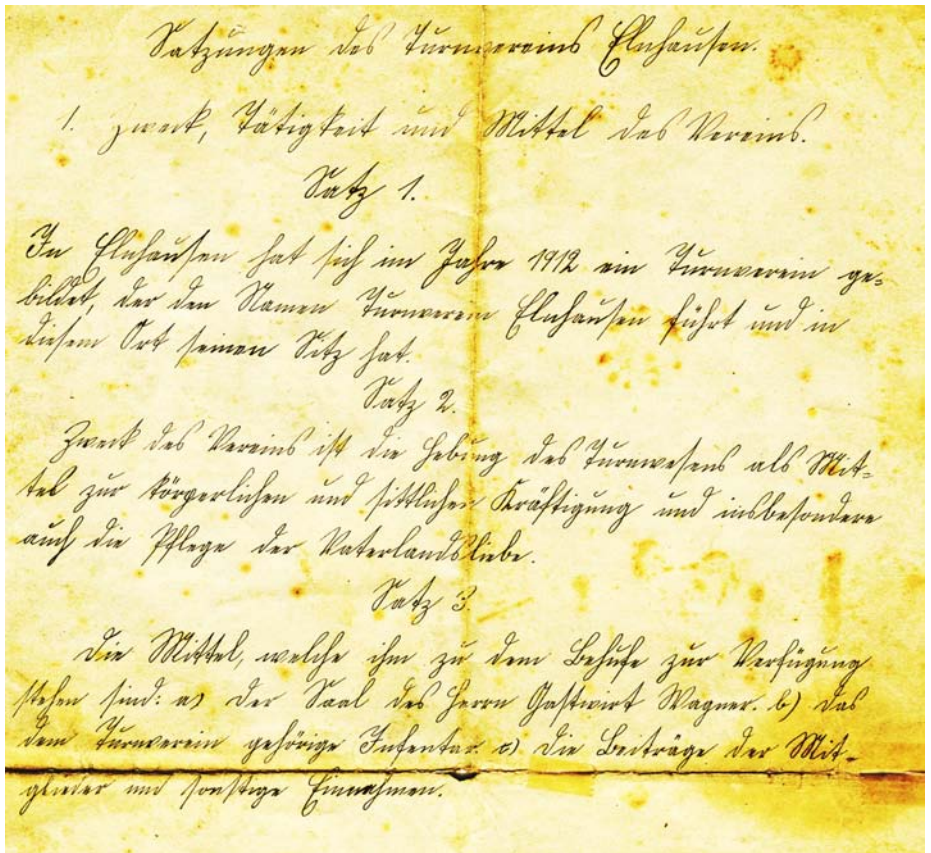 Satzungen des Turnvereins Elnhausen.
1. Zweck, Tätigkeit und Mittel des Vereins.
Satz 1.
In Elnhausen hat sich im Jahre 1912 ein Turnverein ge=
bildet, der den Namen Turnverein Elnhausen führt und in
diesem Ort seinen Sitz hat.
Satz 2.
Zweck des Vereins ist die Hebung des Turnwesens als Mit=
tel zur körperlichen und sittlichen Kräftigung und insbesondere
auch die Pflege der Vaterlandsliebe.
Satz 3.
Die Mittel, welche ihm zu dem Behufe zur Verfügung
stehen sind: a) Der Saal des Herrn Gastwirt Wagner. b) Das
dem Turnverein gehörige Infentar. c) Die Beiträge der Mit=
glieder und sonstige Einnahmen.